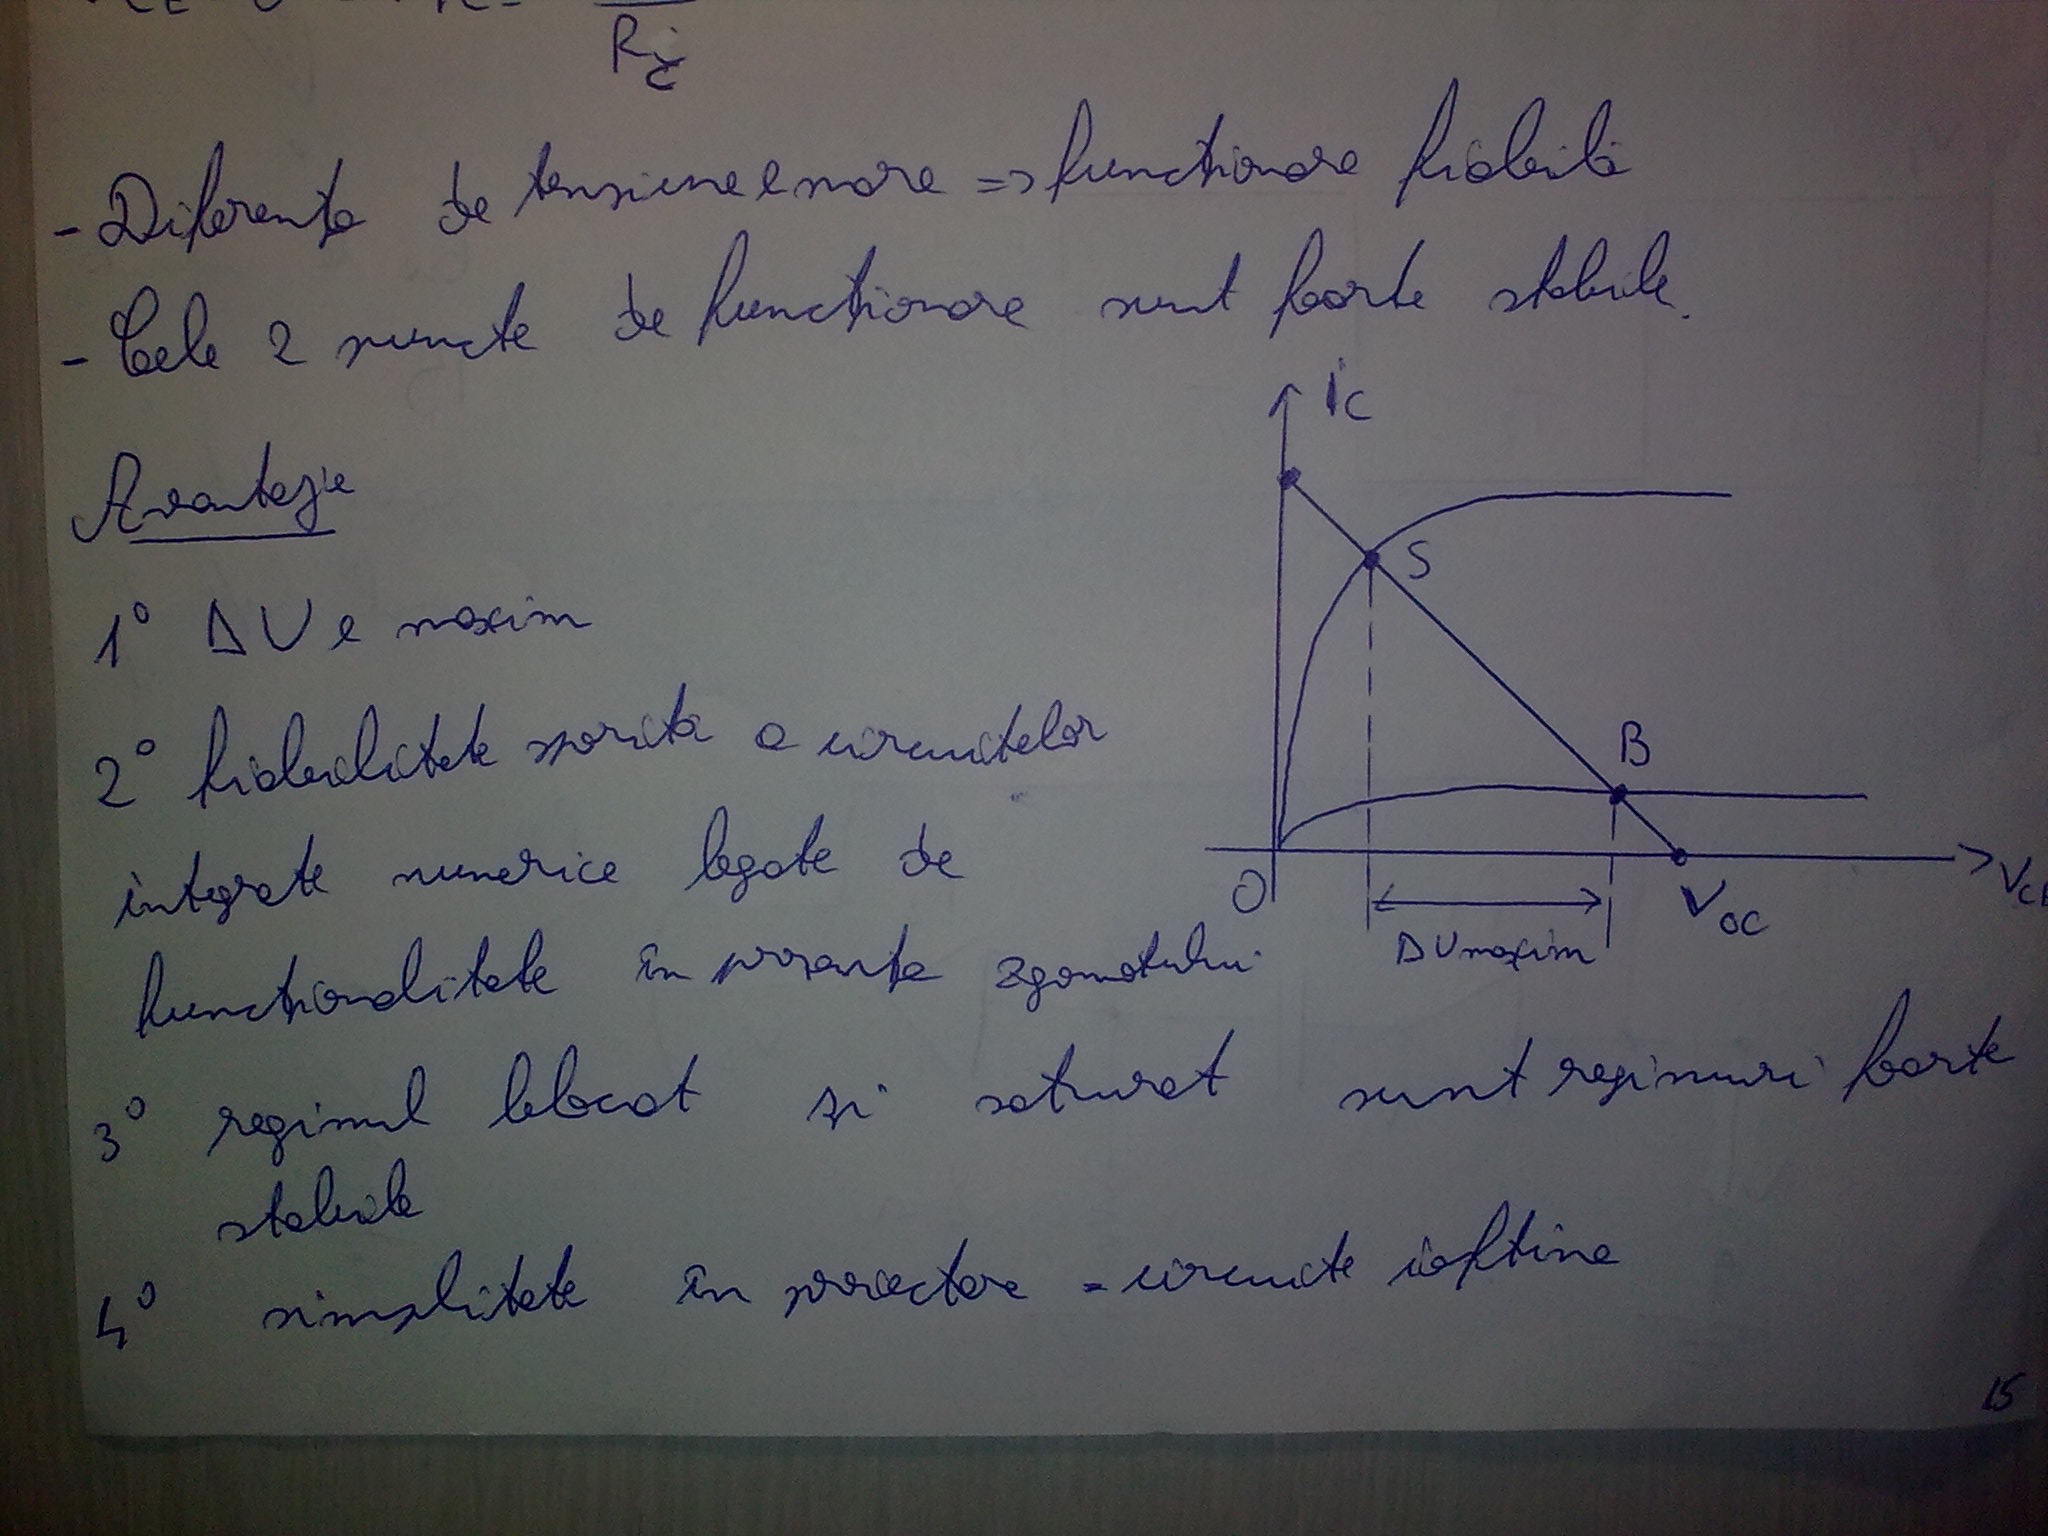 Rc
- Diferența de tensiune e mare => funcționare fiabilă
- Cele 2 puncte de funcționare sunt foarte stabile.
Avantaje
1° ΔU e maxim
2° fiabilitate sporită a circuitelor
integrate numerice legate de
funcționalitate în prezența zgomotului
3° regimul blocat și saturat sunt regimuri foarte
stabile
4° simplitate în proiectare = circuite ieftine
ic
S
B
O
VOC
VCE
ΔU maxim
15